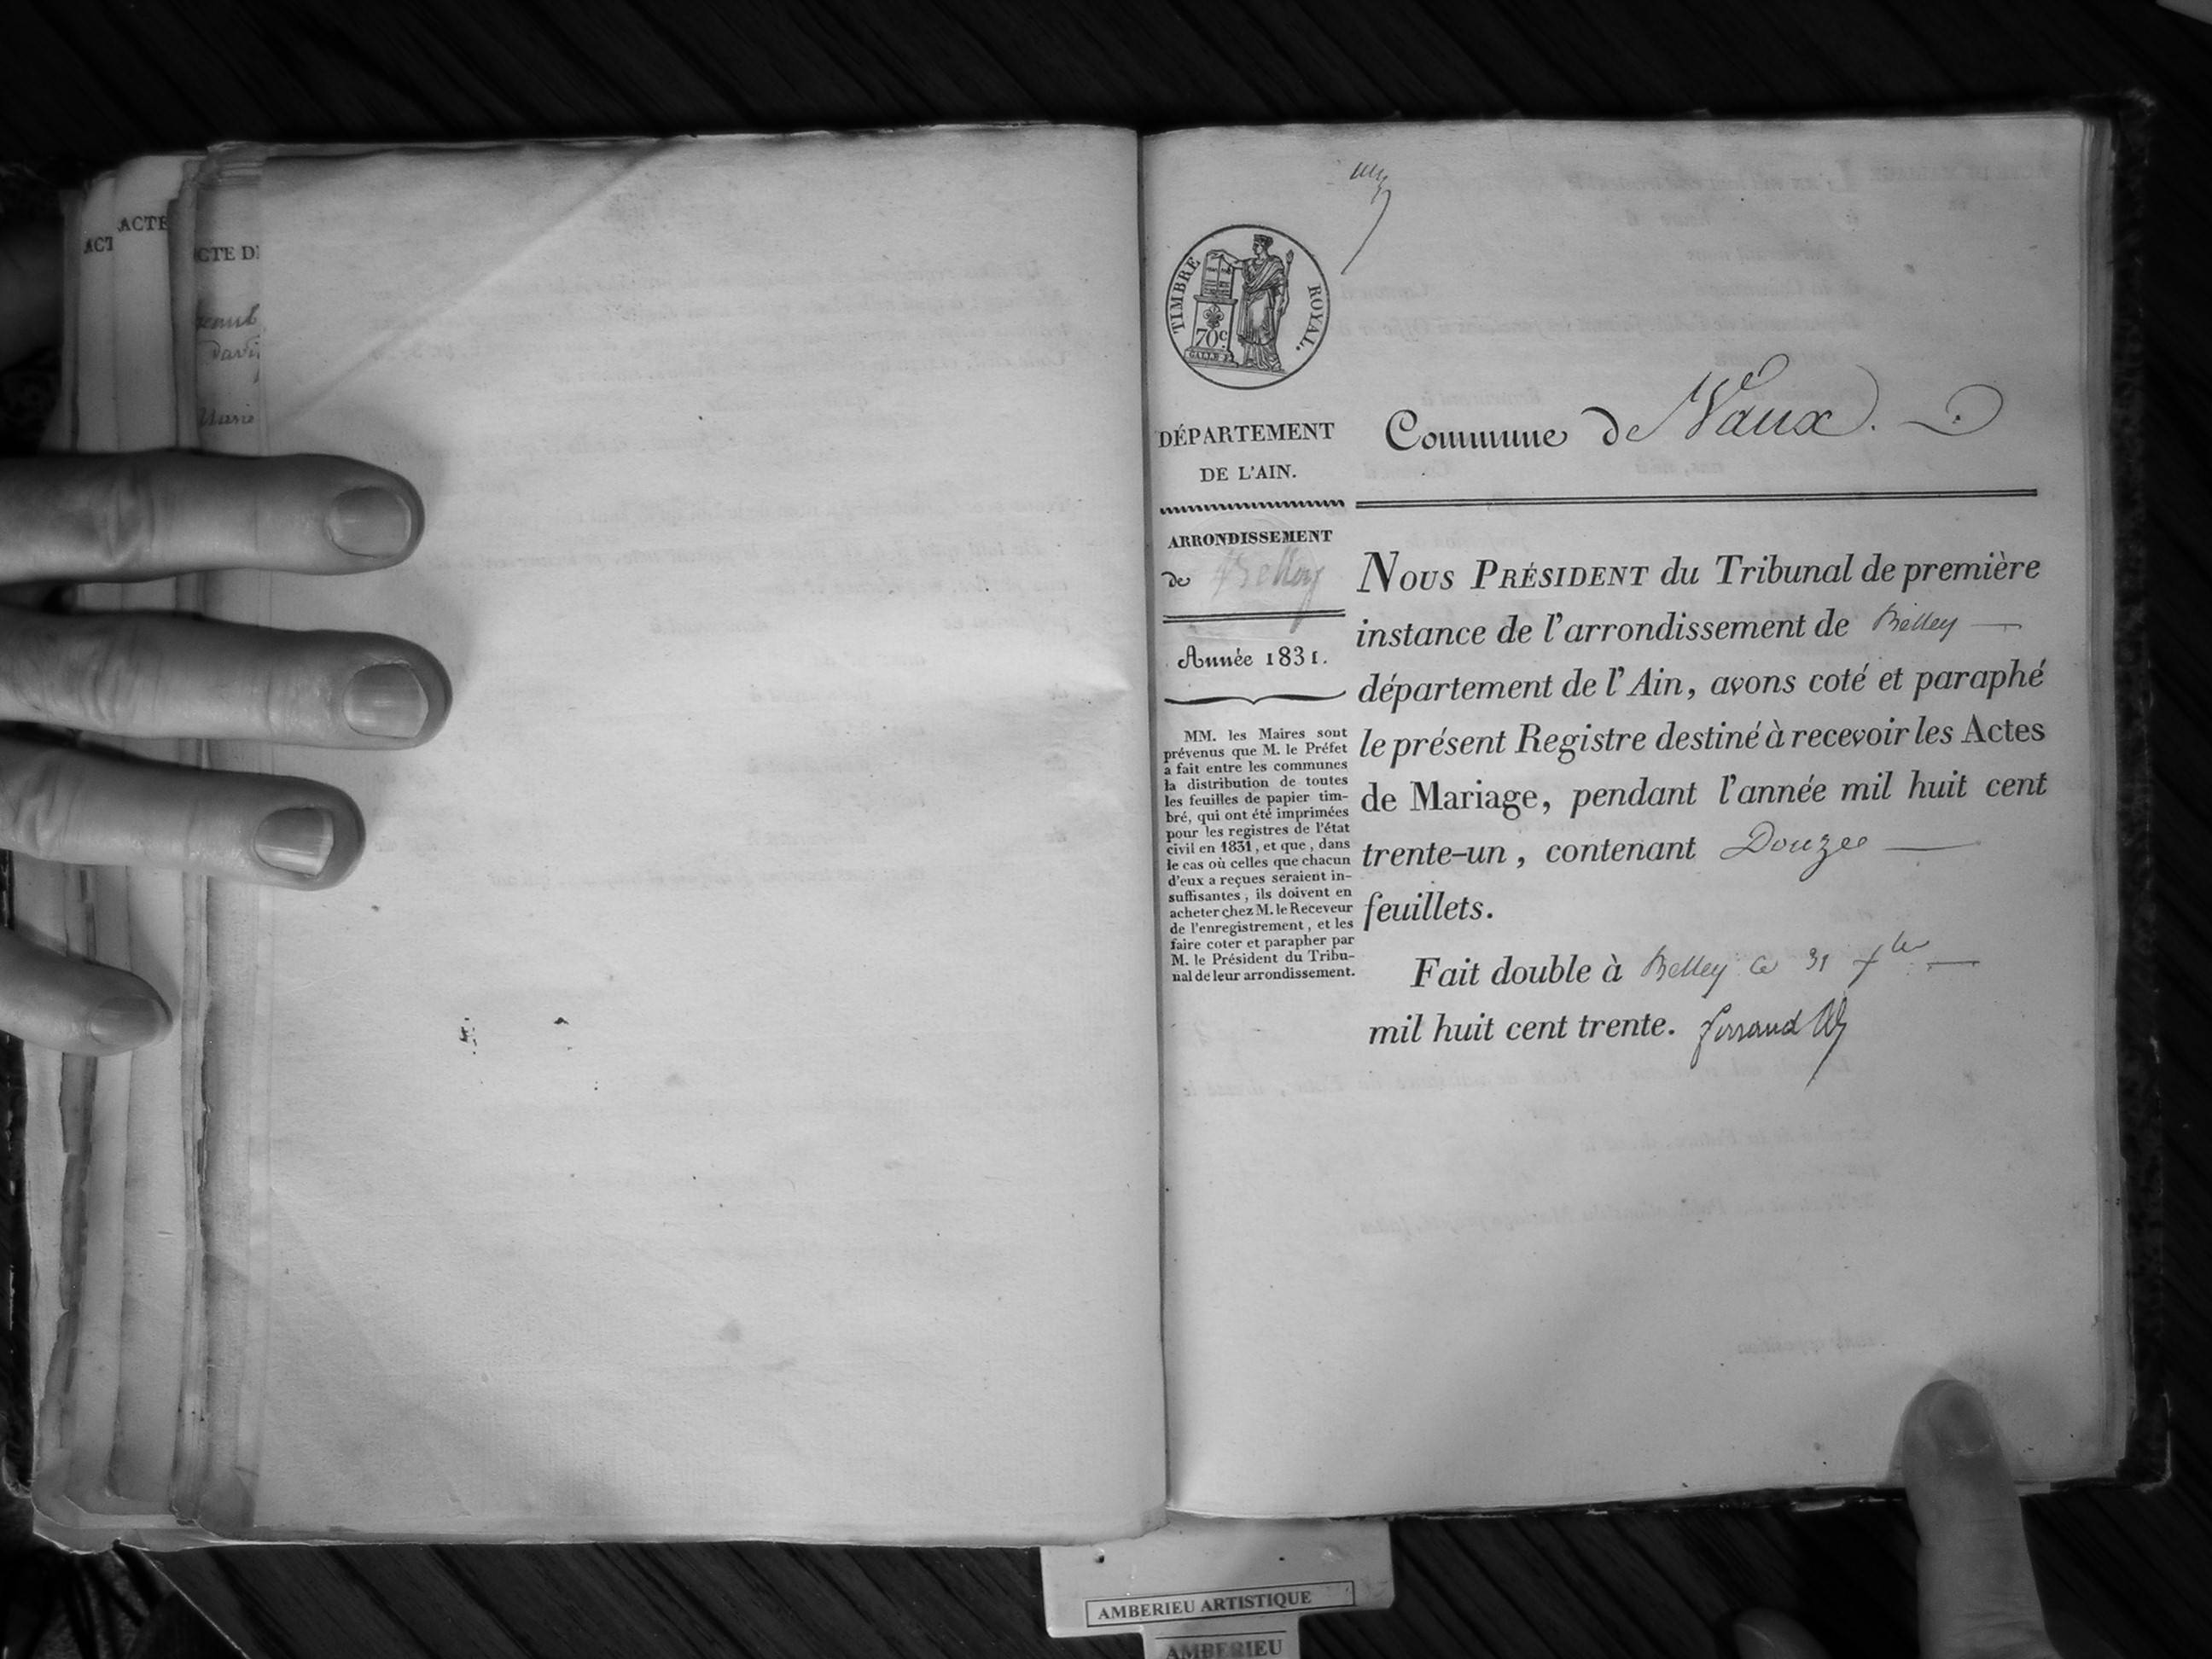 ACTE
ACT
CTE D
Marie
TIMBRE ROYAL.
70c
DÉPARTEMENT
DE L'AIN.
Commune de Vaux.
ARRONDISSEMENT
de Belley
Année 1831.
MM. les Maires sont
prévenus que M. le Préfet
a fait entre les communes
la distribution de toutes
les feuilles de papier tim-
bré, qui ont été imprimées
pour les registres de l'état
civil en 1831, et que, dans
le cas où celles que chacun
d'eux a reçues seraient in-
suffisantes, ils doivent en
acheter chez M. le Receveur
de l'enregistrement, et les
faire coter et parapher par
M. le Président du Tribu-
nal de leur arrondissement.
Nous Président du Tribunal de première
instance de l'arrondissement de Belley
département de l'Ain, avons coté et paraphé
le présent Registre destiné à recevoir les Actes
de Mariage, pendant l'année mil huit cent
trente-un, contenant Douze
feuillets.
Fait double à Belley ce 31 Xbre
mil huit cent trente.
AMBERIEU ARTISTIQUE
AMBERIEU